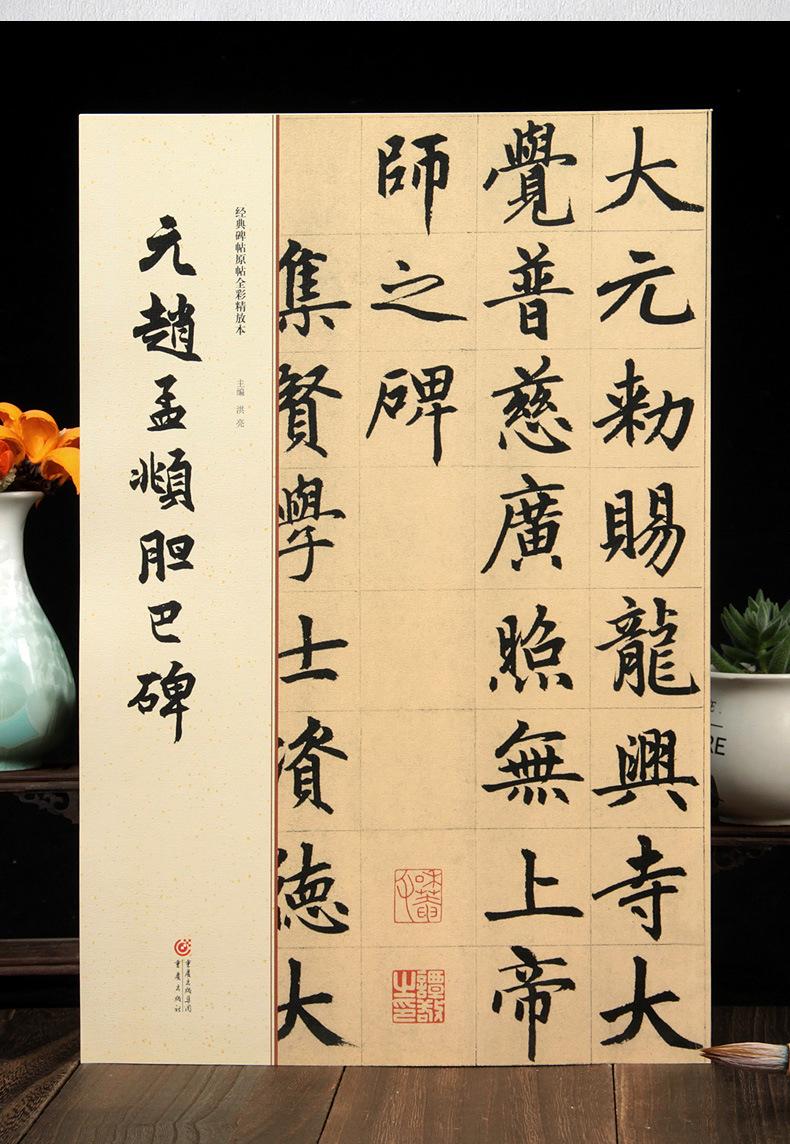 大元勑賜龍興寺大
覺普慈廣照無上帝
師之碑
集賢學士資德大
譚敬之印
经典碑帖原帖全彩精放本
主编 洪亮
元趙孟頫胆巴碑
重庆出版集团
重庆出版社
RE